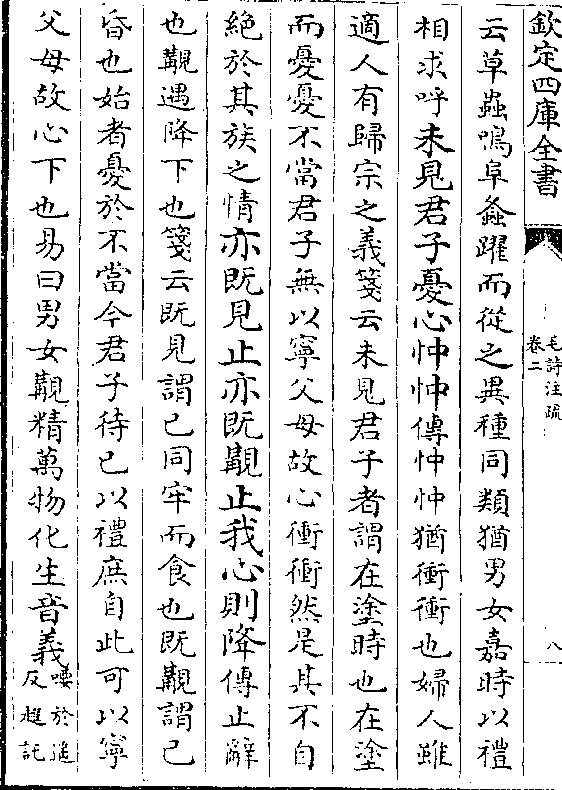 欽定四庫全書
毛詩注疏
卷二
八
云草蟲鳴阜螽躍而從之異種同類猶男女嘉時以禮
相求呼未見君子憂心忡忡傳忡忡猶衝衝也婦人雖
適人有歸宗之義箋云未見君子者謂在塗時也在塗
而憂憂不當君子無以寧父母故心衝衝然是其不自
絶於其族之情亦既見止亦既覯止我心則降傳止辭
也覯遇降下也箋云既見謂已同牢而食也既覯謂已
昏也始者憂於不當今君子待已以禮庶自此可以寧
父母故心下也易曰男女覯精萬物化生音義喓於遥
反趯託